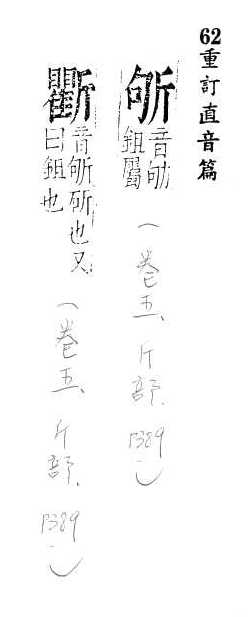 62重訂直音篇
斪
音劬
鉏屬
(卷五、斤部. P389)
音斪斫也又
曰鉏也
(卷五、斤部. P389)